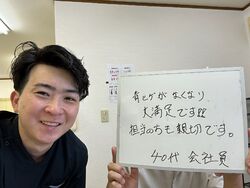 がなくなり
大満足です!!
担当の方も親切です。
40代 会社員